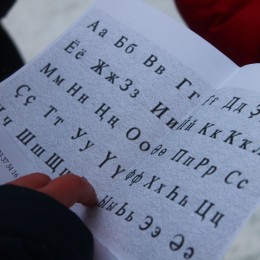 Аа Бб Вв Гг Ғғ Дд Ҙ
Ёё Жж Зз Ии Йй Кк Ҡҡ
Мм Нн Ңң Оо Өө Пп Рр Сс
Ҫҫ Тт Уу Үү Фф Хх Һһ Цц
ч Шш Щщ Ыы Ьь Ээ Әә